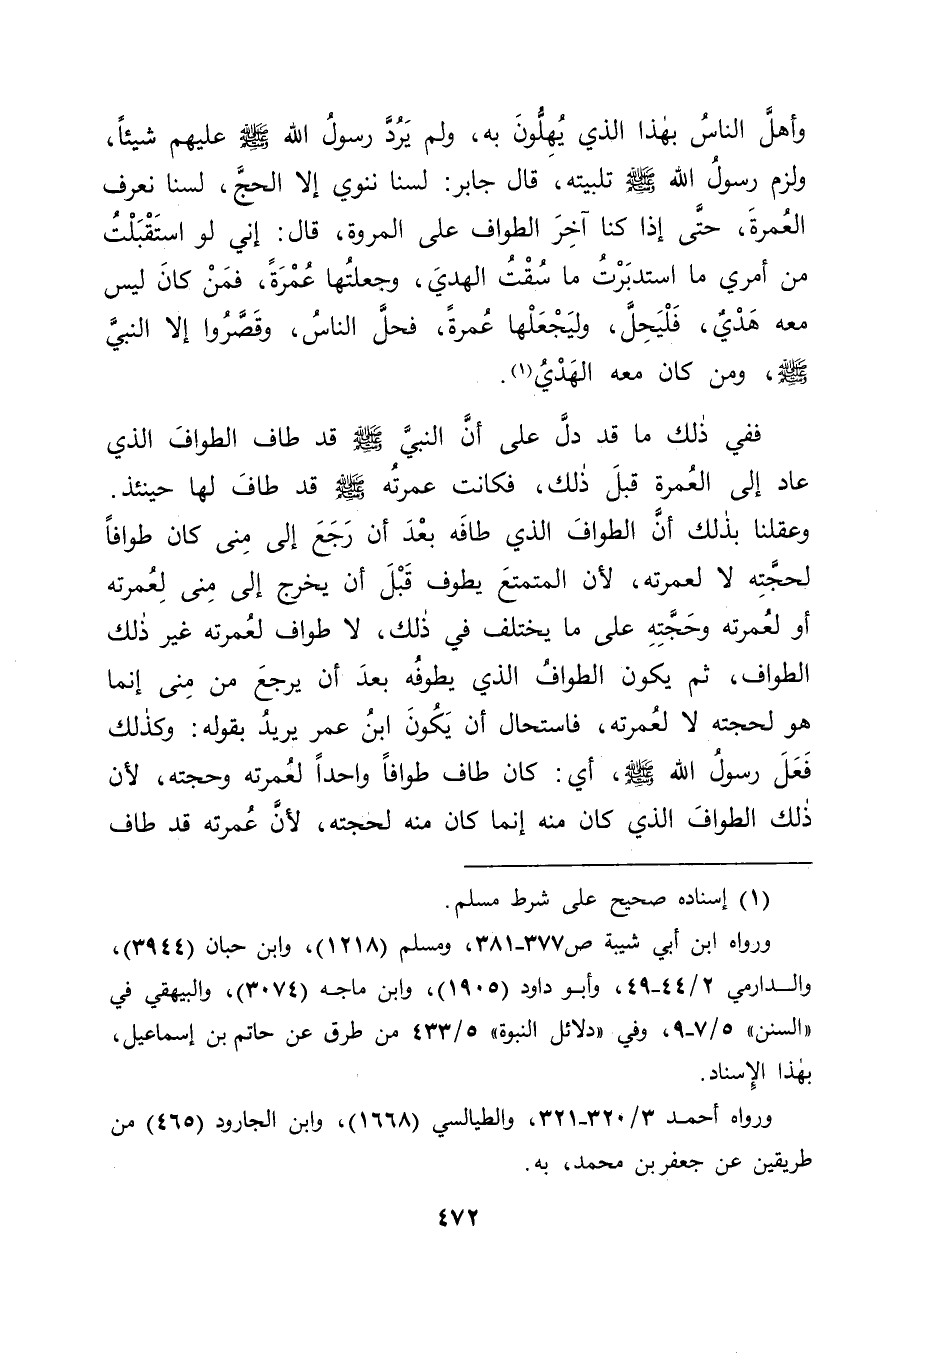 وأهلَّ الناسُ بهٰذا الذي يُهِلُّونَ به، ولم يَرُدَّ رسولُ الله ﷺ عليهم شيئاً،
ولزم رسولُ الله ﷺ تلبيته، قال جابر: لسنا ننوي إلا الحجَّ، لسنا نعرف
العُمرةَ، حتَّى إذا كنا آخِرَ الطواف على المروة، قال: إني لو استَقْبَلْتُ
من أمري ما استدبَرْتُ ما سُقْتُ الهديَ، وجعلتُها عُمْرَةً، فمَنْ كانَ ليس
معه هَدْيٌ، فَلْيَحِلَّ، وليَجْعَلْها عُمرةً، فحلَّ الناسُ، وقَصَّرُوا إلا النبيَّ
ﷺ، ومن كان معه الهَدْيُ(١).
ففي ذٰلك ما قد دلَّ على أنَّ النبيَّ ﷺ قد طاف الطوافَ الذي
عاد إلى العُمرة قبلَ ذٰلك، فكانت عمرتُه ﷺ قد طافَ لها حينئذ.
وعقلنا بذٰلك أنَّ الطوافَ الذي طافَه بعْدَ أن رَجَعَ إلى مِنى كان طوافاً
لحجَّتِه لا لعمرته، لأن المتمتعَ يطوف قَبْلَ أن يخرج إلى مِنى لِعُمرته
أو لعُمرته وحَجَّتِهِ على ما يختلف في ذٰلك، لا طواف لعُمرته غير ذٰلك
الطواف، ثم يكون الطوافُ الذي يطوفُه بعدَ أن يرجعَ من مِنى إنما
هو لحجته لا لعُمرته، فاستحال أن يَكُونَ ابنُ عمر يريدُ بقوله: وكذٰلك
فَعَلَ رسولُ الله ﷺ، أي: كان طاف طوافاً واحداً لعُمرته وحجته، لأن
ذٰلك الطوافَ الذي كان منه إنما كان منه لحجته، لأنَّ عُمرته قد طاف
(١) إسناده صحيح على شرط مسلم.
ورواه ابن أبي شيبة ص٣٧٧-٣٨١، ومسلم (١٢١٨)، وابن حبان (٣٩٤٤)،
والدارمي ٤٤/٢-٤٩، وأبو داود (١٩٠٥)، وابن ماجه (٣٠٧٤)، والبيهقي في
«السنن» ٧/٥-٩، وفي «دلائل النبوة» ٤٣٣/٥ من طرق عن حاتم بن إسماعيل،
بهٰذا الإِسناد.
ورواه أحمد ٣٢٠/٣-٣٢١، والطيالسي (١٦٦٨)، وابن الجارود (٤٦٥) من
طريقين عن جعفر بن محمد، به.
٤٧٢